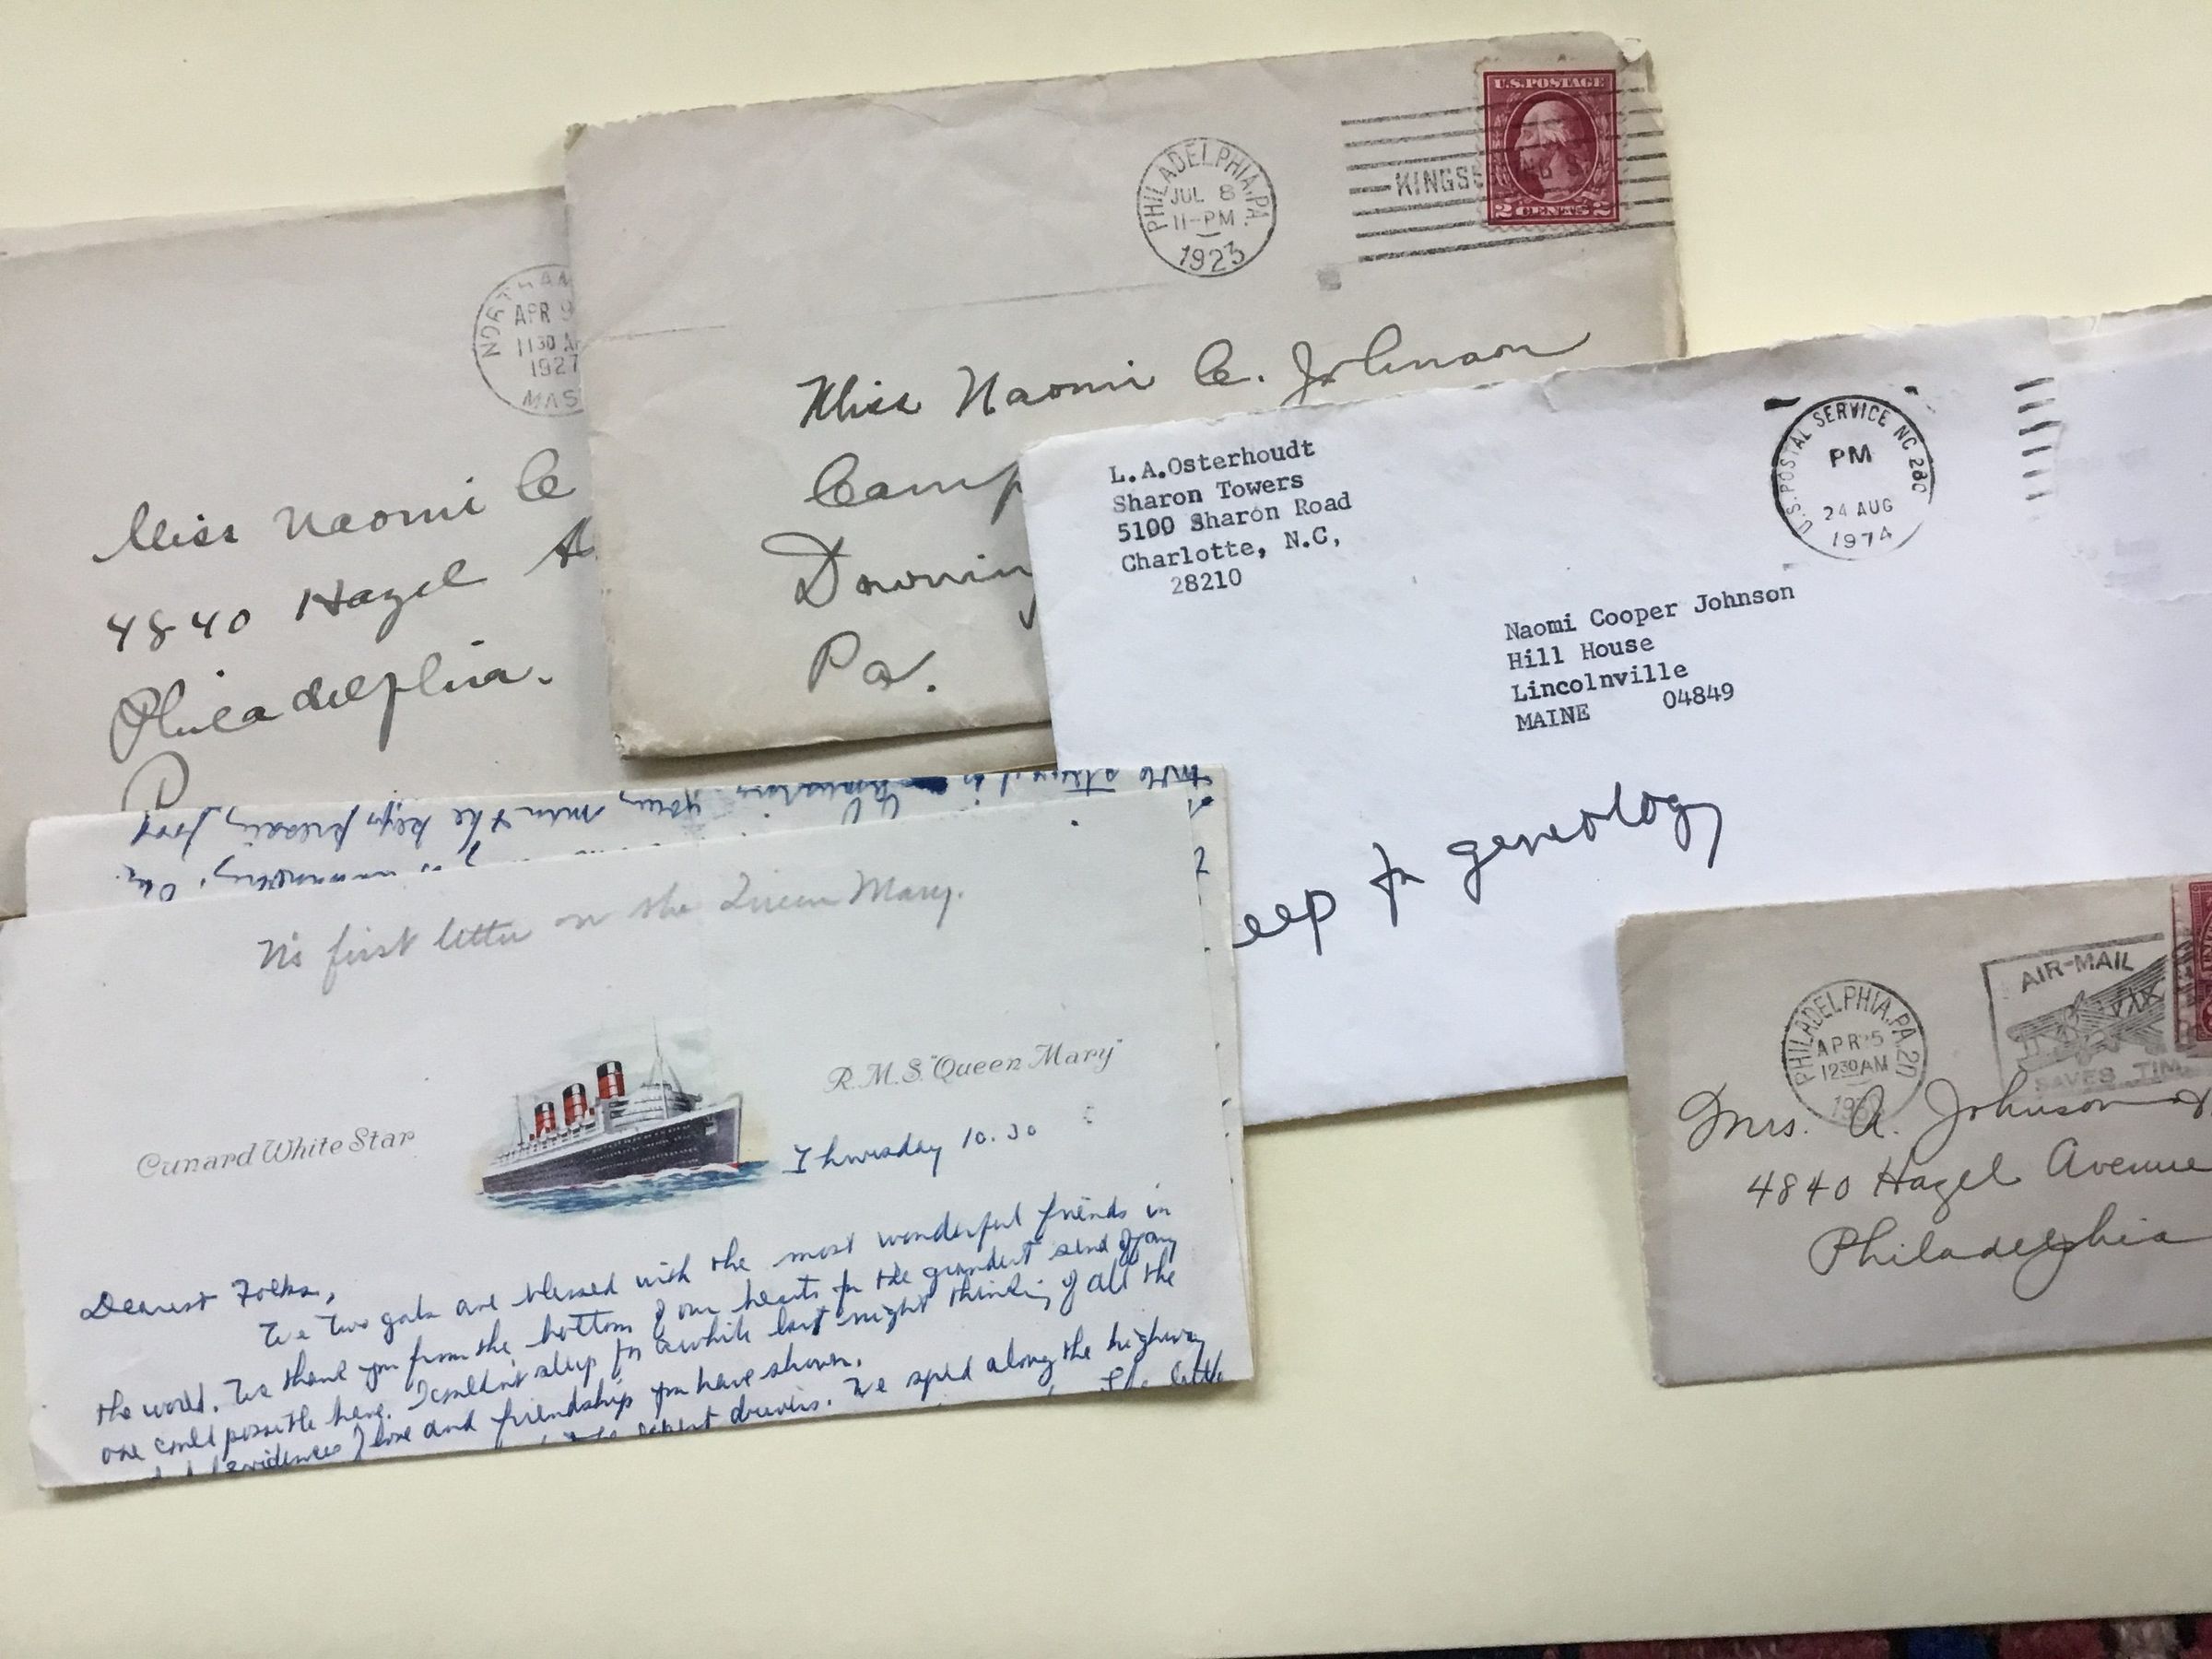 NORTHAM
APR 9
1130 A
1927
MAS
Miss Naomi C
4840 Hazel A
Philadelphia.
P
PHILADELPHIA, PA.
JUL 8
11-PM
1923
KINGS
U.S. POSTAGE
2 CENTS 2
Miss Naomi C. Johnson
Camp
Downin
Pa.
L.A.Osterhoudt
Sharon Towers
5100 Sharon Road
Charlotte, N.C,
28210
U.S. POSTAL SERVICE NC 280
PM
24 AUG
1974
Naomi Cooper Johnson
Hill House
Lincolnville
MAINE 04849
eep for geneology
PHILADELPHIA, PA.
APR 5
1230 AM
193
AIR-MAIL
SAVES TIM
Mrs. A. Johnson
4840 Hazel Avenue
Philadelphia
N's first letter on the Queen Mary.
Cunard White Star
R.M.S. "Queen Mary"
Thursday 10.30
Dearest Folks,
We two gals are blessed with the most wonderful friends in
the world. We thank you from the bottom of our hearts for the grandest send off any
one could possible have. I couldn't sleep for awhile last night thinking of all the
evidences of love and friendship you have shown.
expert drivers. We sped along the highway
The little